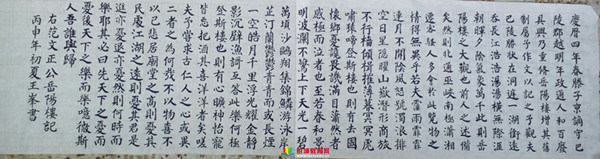 慶曆四年春滕子京謫守巴
陵郡越明年政通人和百廢
具興乃重修岳陽樓增其舊
制屬予作文以記之予觀夫
巴陵勝狀在洞庭一湖銜遠
山吞長江浩浩湯湯橫無際涯
朝暉夕陰氣象萬千此則岳
陽樓之大觀也前人之述備
矣然則北通巫峽南極瀟湘
遷客騷人多會於此覽物之
情得無異乎若夫霪雨霏霏
連月不開陰風怒號濁浪排
空日星隱曜山嶽潛形商旅
不行檣傾楫摧薄暮冥冥虎
嘯猿啼登斯樓也則有去國
懷鄉憂讒畏譏滿目蕭然者
感極而悲者也至若春和景
明波瀾不驚上下天光一碧
萬頃沙鷗翔集錦鱗游泳岸
芷汀蘭鬱鬱青青而或長煙
一空皓月千里浮光耀金靜
影沉璧漁歌互答此樂何極
登斯樓也則有心曠神怡寵
皆忘把酒其喜洋洋者矣嗟
夫予嘗求古仁人之心或異
二者之為何哉不以物喜不
以己悲居廟堂之高則憂其
民處江湖之遠則憂其君是
進亦憂退亦憂然則何時而
樂耶其必曰先天下之憂而
憂後天下之樂而樂噫微斯
人吾誰與歸
右范文正公岳陽樓記
丙申年初夏王峯書